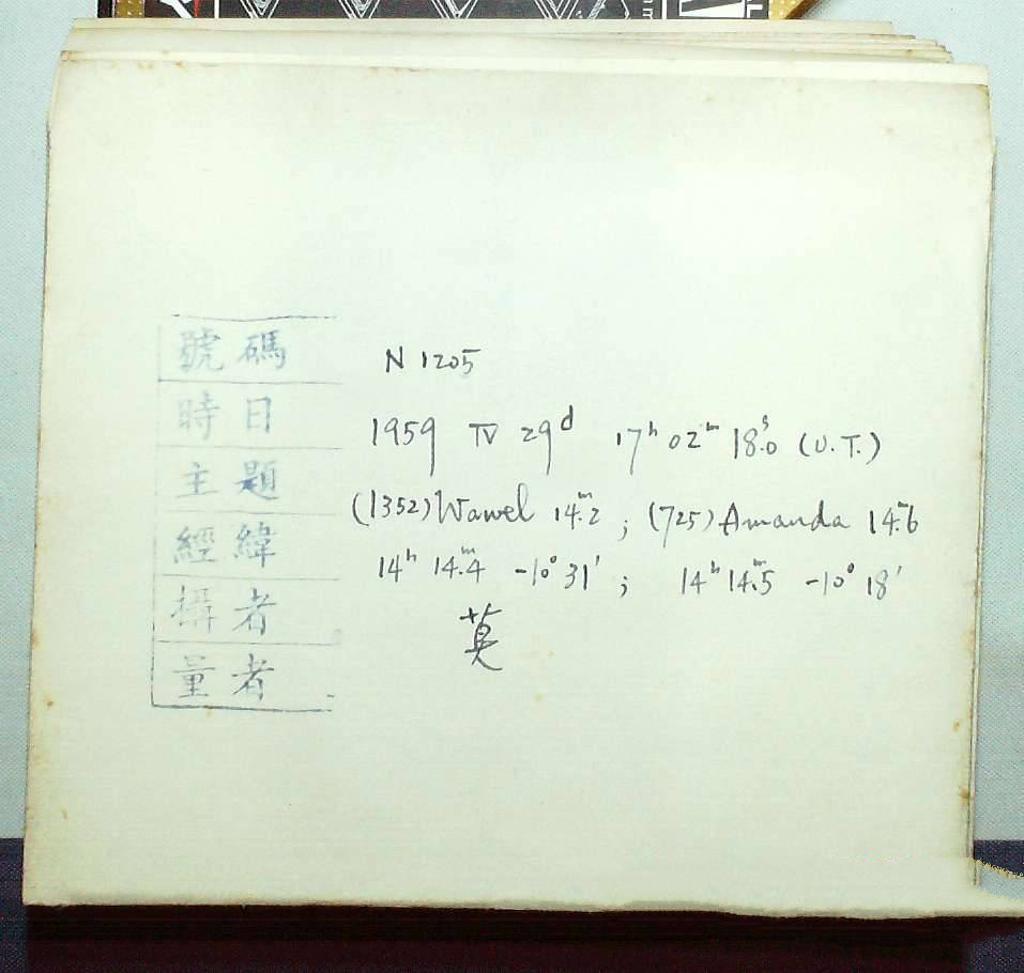 號碼 N 1205
時日 1959 IV 29ᵈ 17ʰ 02ᵐ 18ˢ.0 (U.T.)
主題 (1352) Wawel 14ᵐ.2 ; (725) Amanda 14ᵐ.6
經緯 14ʰ 14ᵐ.4 -10° 31' ; 14ʰ 14ᵐ.5 -10° 18'
攝者 莫
量者